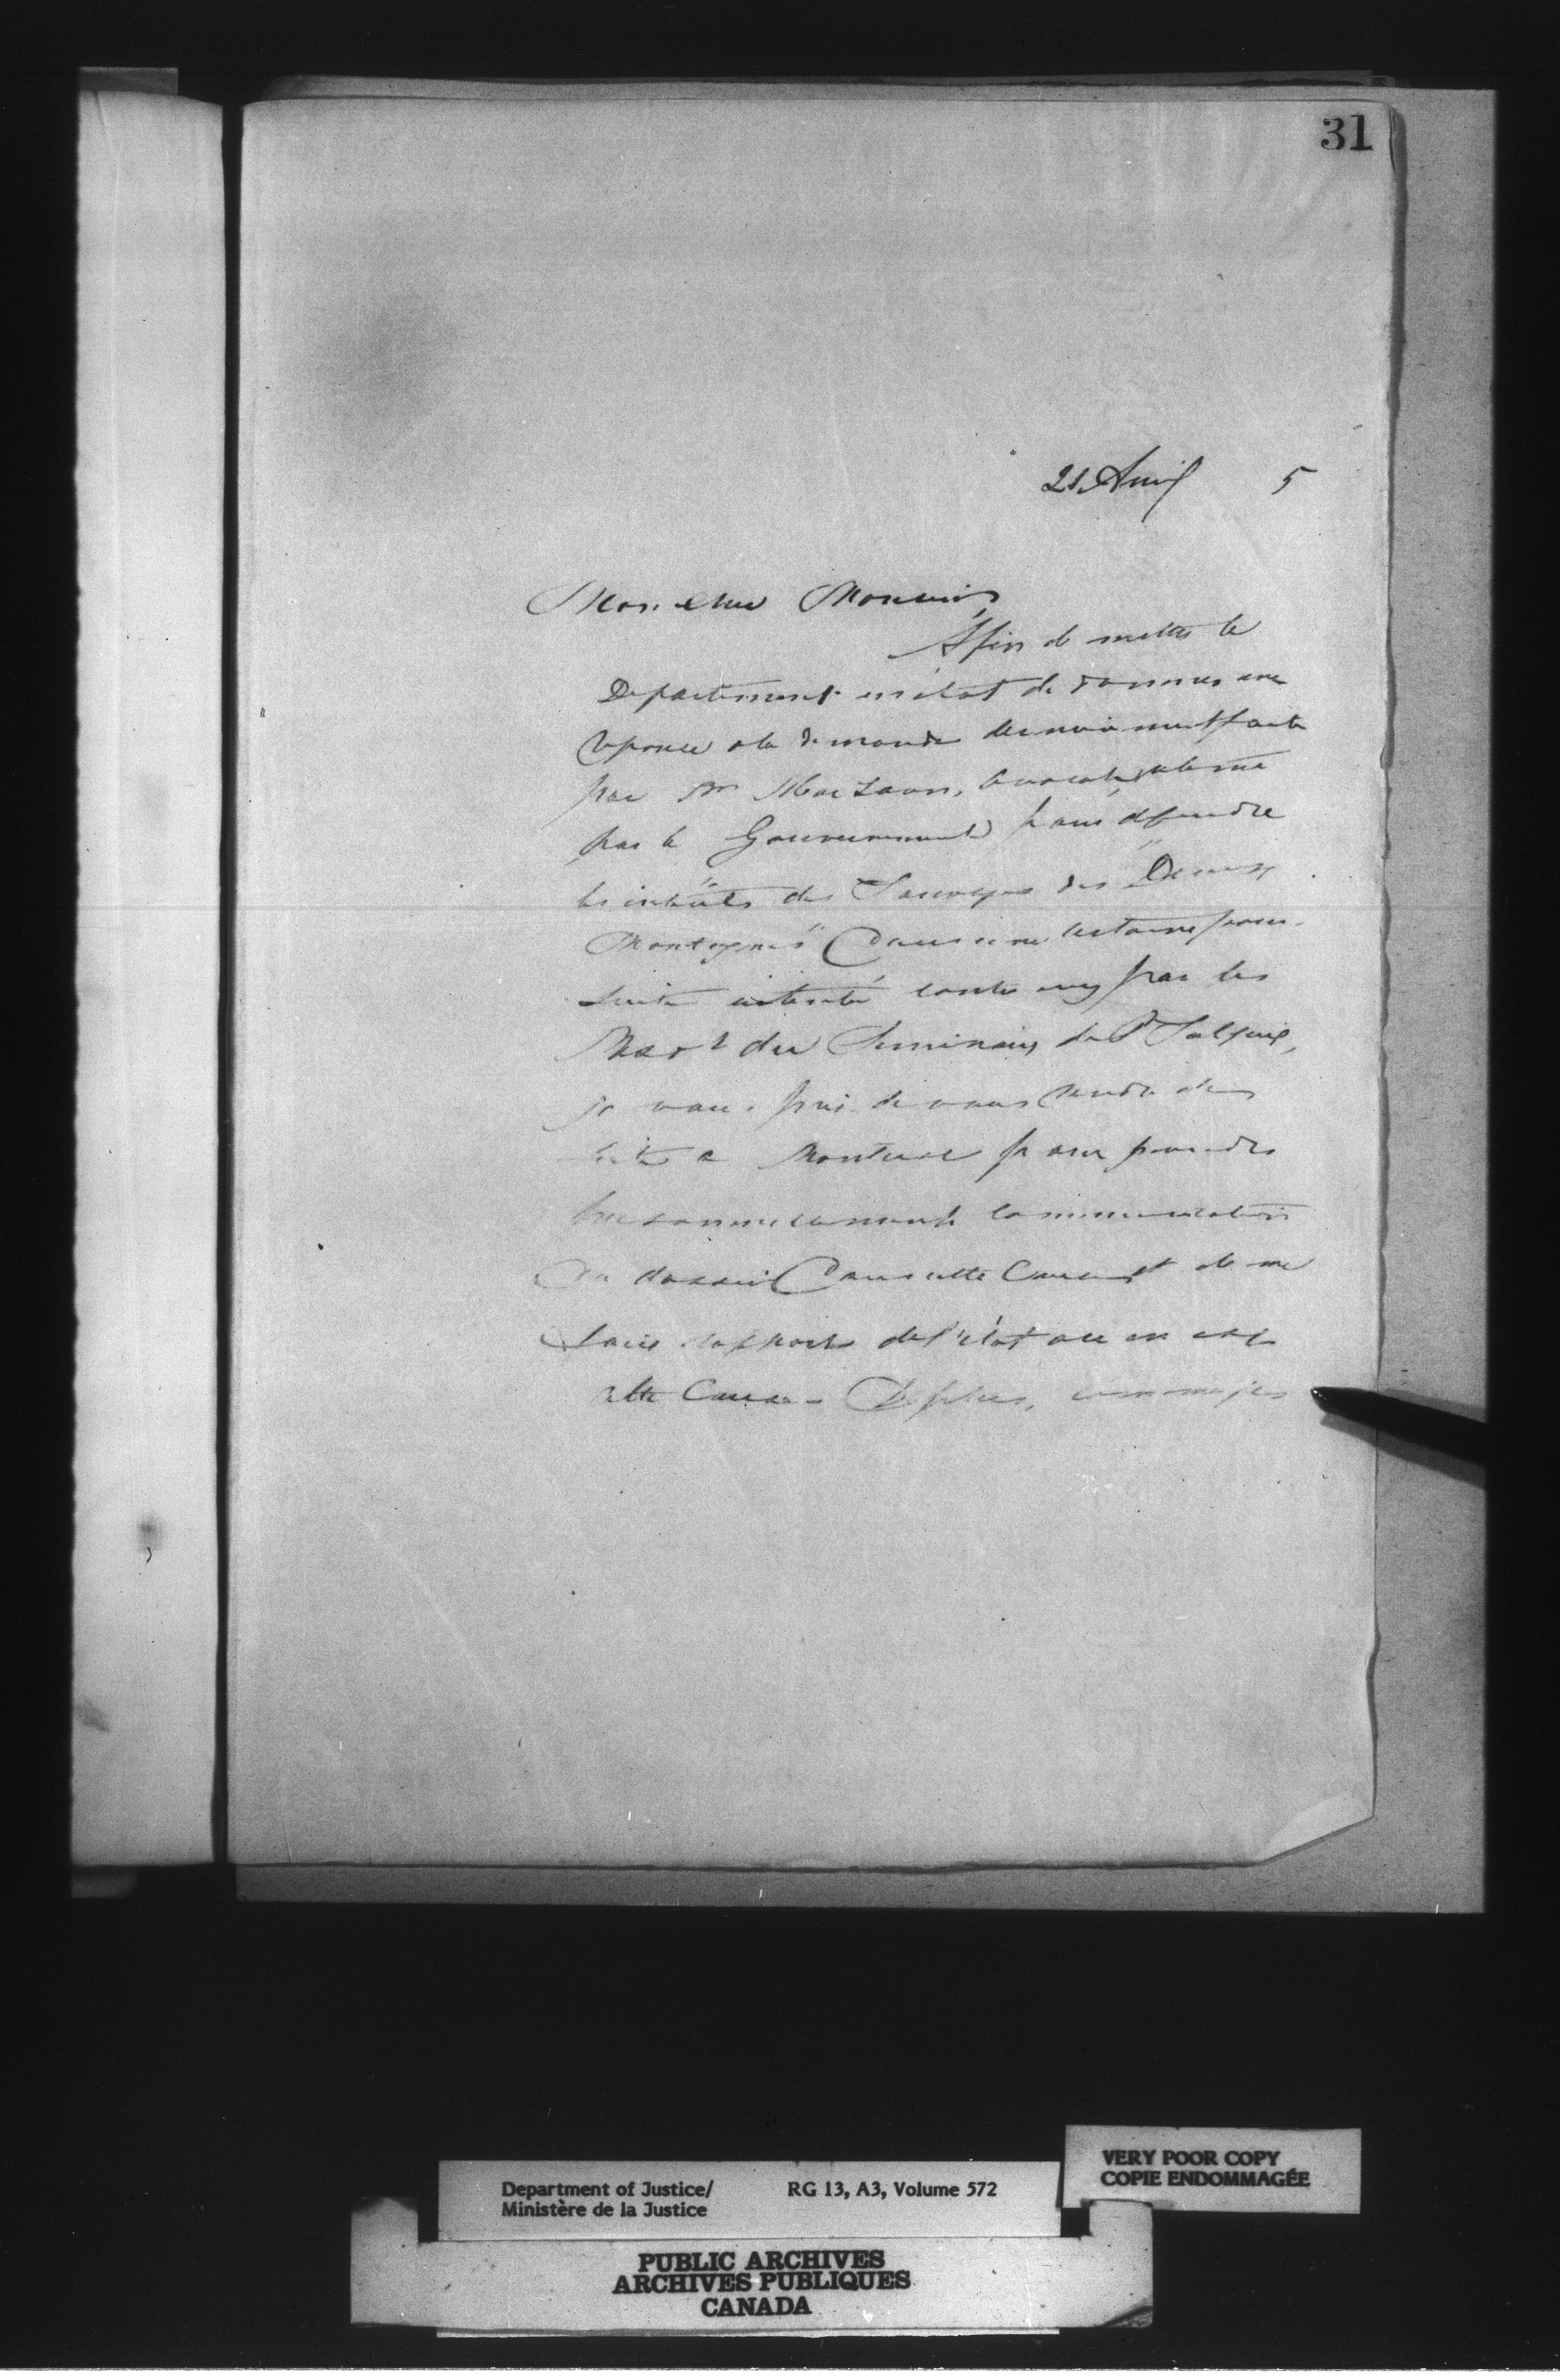 31
21 Avril 5
Mon cher Monsieur
Afin de mettre le
Departement en état de donner une
reponse a la demande dernierement faite
par Mr MacLaren, avocat,
par le Gouvernement pour défendre
les intérêts des Sauvages des "Deux
Montagnes" dans une certaine pour-
suite intentée contre eux par les
Mess rs du Seminaire de St Sulpice,
je vous prie de vous rendre de
suite a Montreal pour prendre
personnellement communication
du dossier dans cette Cause et de me
faire rapport de l'état ou en est
cette Cause - De plus, comme je
Department of Justice/
Ministère de la Justice
RG 13, A3, Volume 572
VERY POOR COPY
COPIE ENDOMMAGÉE
PUBLIC ARCHIVES
ARCHIVES PUBLIQUES
CANADA